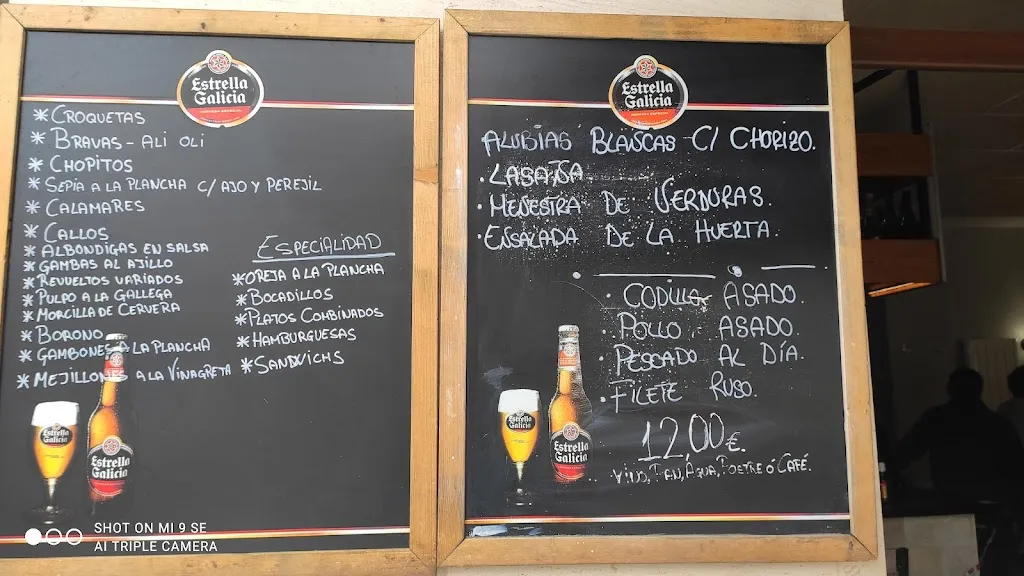 Estrella
Galicia
*CROQUETAS
*BRAVAS-ALI OLI
*CHOPITOS
*SEPIA A LA PLANCHA C/AJO Y PEREJIL
*CALAMARES
*CALLOS
*ALBONDIGAS EN SALSA
*GAMBAS AL AJILLO
*REVUELTOS VARIADOS
*PULPO A LA GALLEGA
*MORCILLA DE CERVERA
*BORONO
*GAMBONES A LA PLANCHA
*MEJILLONES A LA VINAGRETA
ESPECIALIDAD
*OREJA A LA PLANCHA
*BOCADILLOS
*PLATOS COMBINADOS
*HAMBURGUESAS
*SANDWICHS
Estrella
Galicia
Estrella
Galicia
SHOT ON MI 9 SE
AI TRIPLE CAMERA
Estrella
Galicia
ALUBIAS BLANCAS C/ CHORIZO.
·LASAÑA
·MENESTRA DE VERDURAS.
·ENSALADA DE LA HUERTA.
·CODILLO ASADO.
·POLLO ASADO.
·PESCADO AL DÍA.
·FILETE RUSO.
12,00€.
VINO, PAN, AGUA, POSTRE Ó CAFÉ.
Estrella
Galicia
Estrella
Galicia